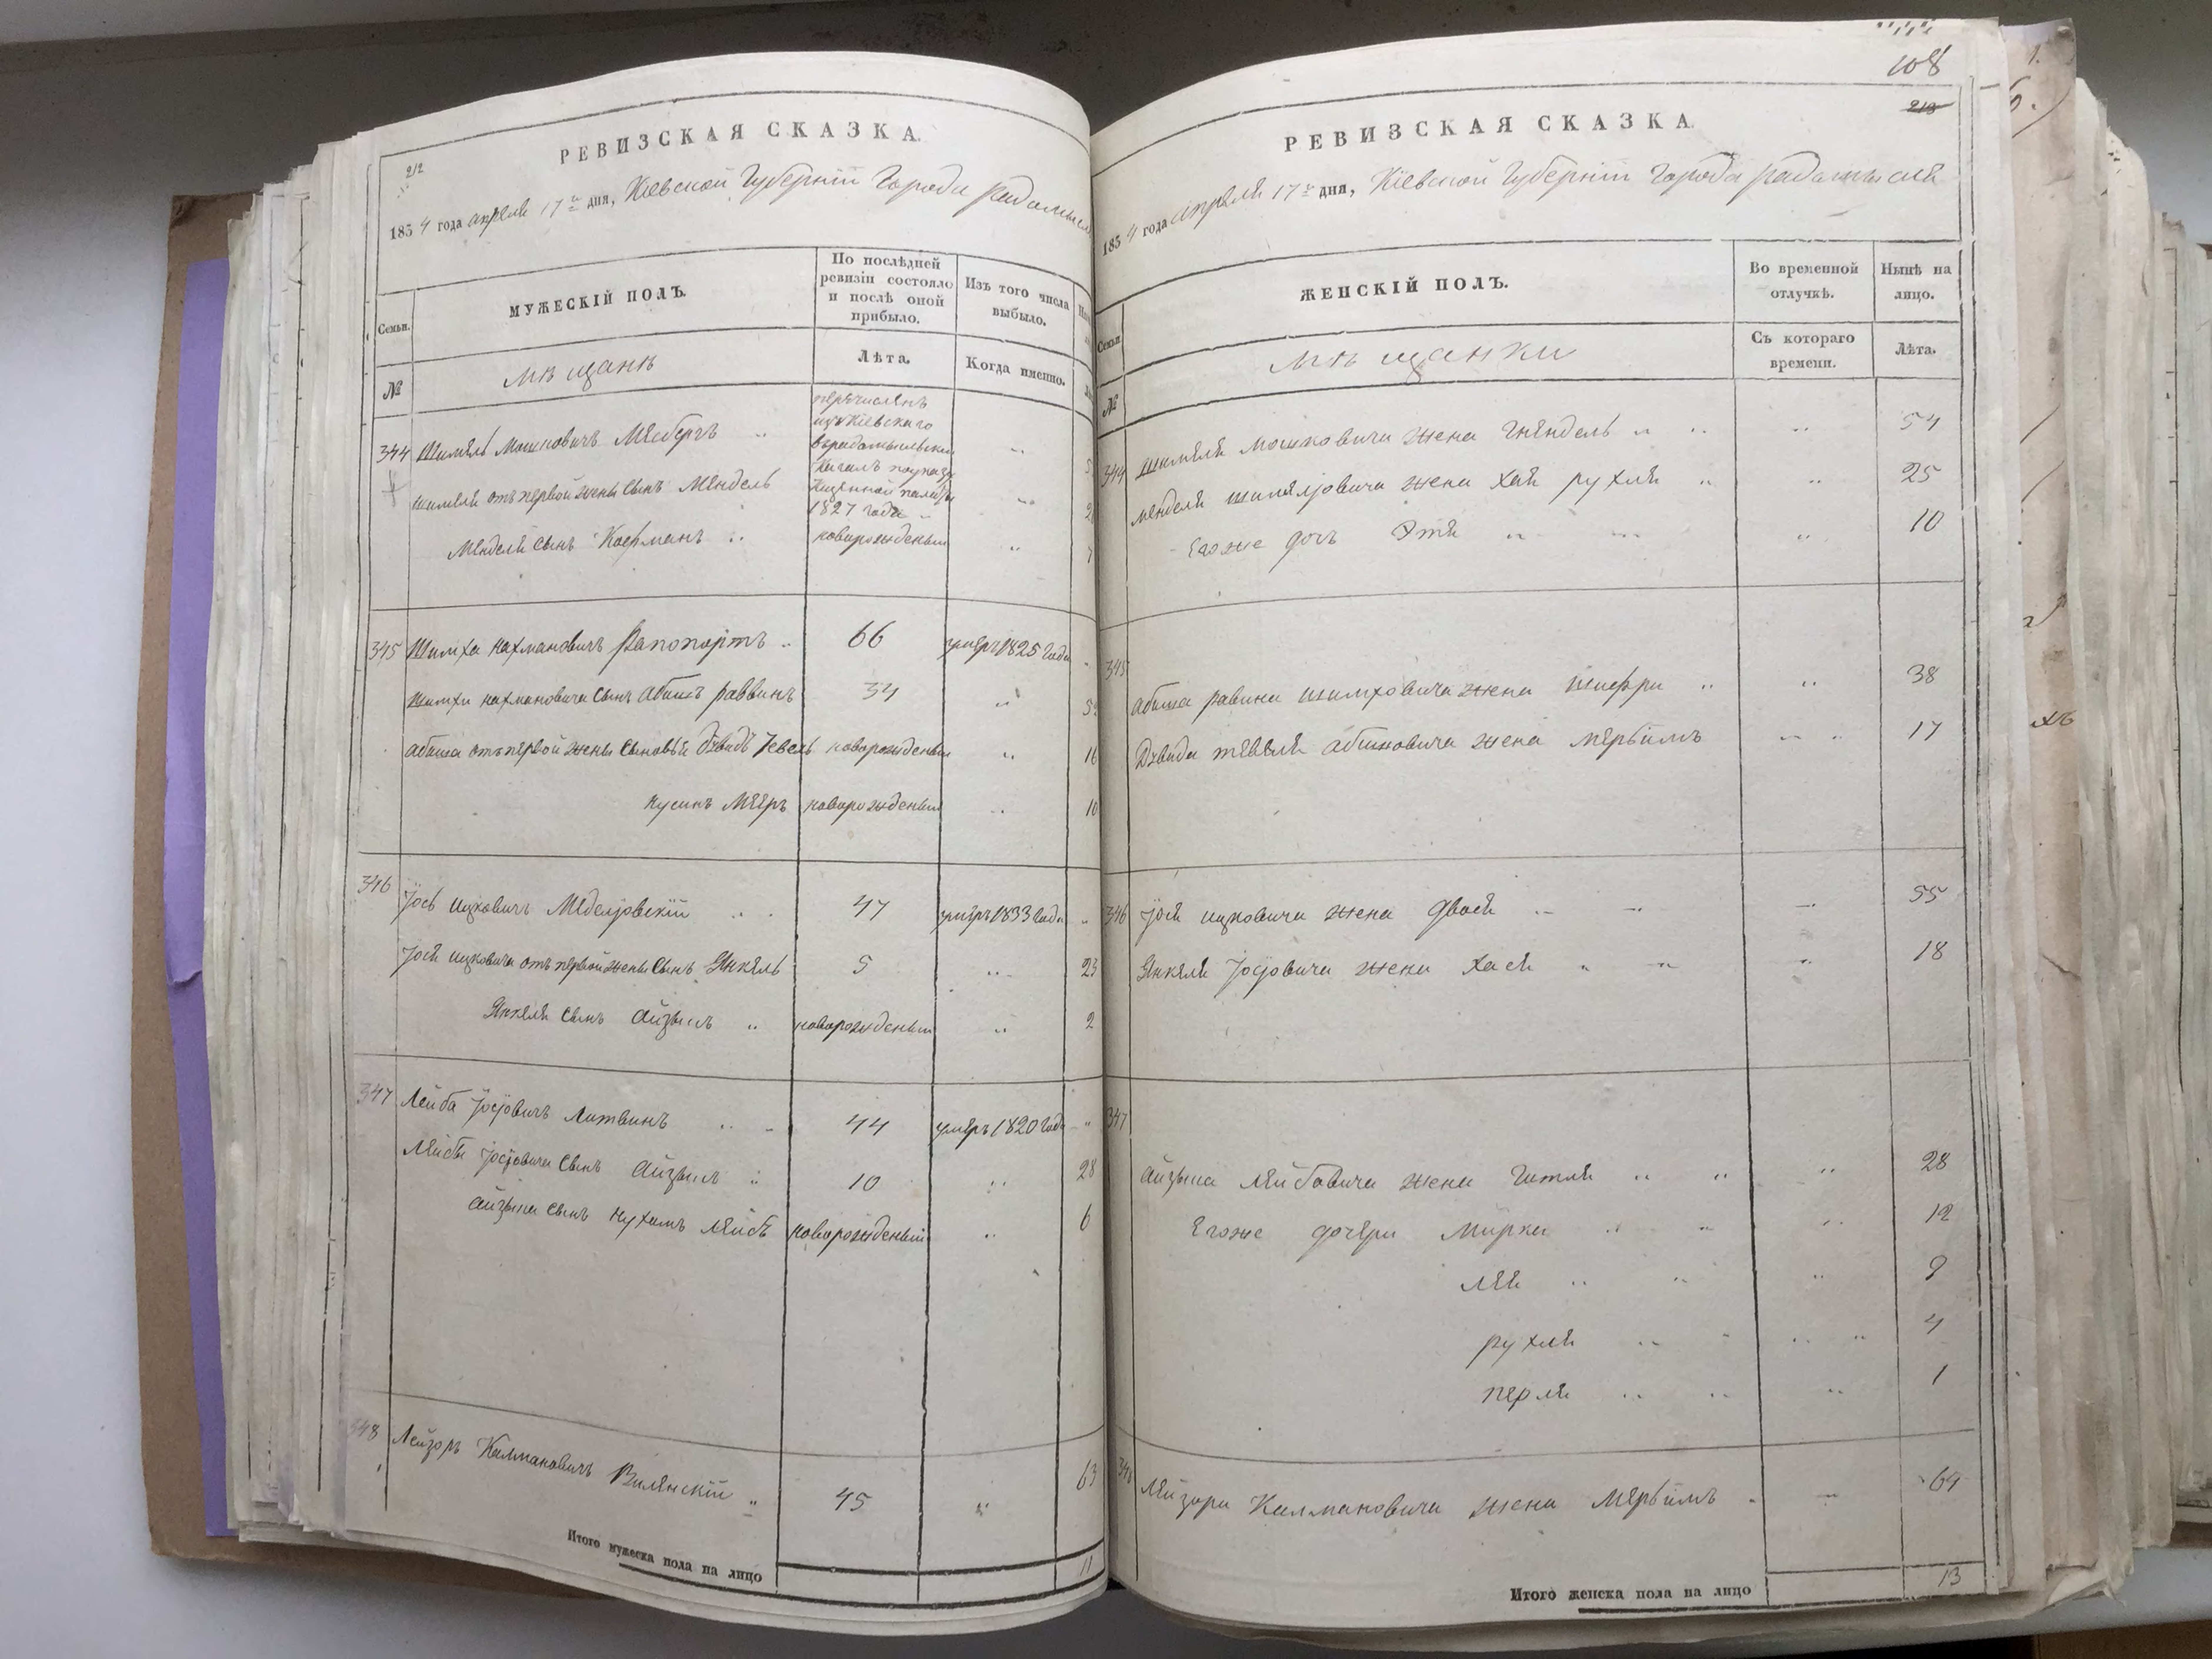 212
РЕВИЗСКАЯ СКАЗКА.
1834 года апреля 17го дня, Кіевской Губерніи Города радомысля
Семьи.
МУЖЕСКІЙ ПОЛЪ.
По послѣдней
ревизіи состояло
и послѣ оной
прибыло.
Изъ того числа
выбыло.
№
мѣщанѣ
Лѣта.
Когда именно.
344 Шимель Мошковичъ
перечисленъ
изъ Кіевскаго
Кагалъ по указу
Казенной палаты
1827 года
Шимеля отъ первой жены сынъ Мендель
Менделя сынъ новорожденый
345 Шимха Нахмановичъ Рапопортъ 66 умеръ 1825 года
Шимхи Нахмановича сынъ Абишъ раввинъ 34
Абиша отъ первой жены сыновья Дувидъ Тевель новорожденый 16
Нусинъ Мееръ новорожденый 10
346 Іось Ицковичъ 47 умеръ 1833 года
Іося Ицковича отъ первой жены сынъ Янкель 5 23
Янкеля сынъ Айзыкъ новорожденый 2
347 Лейба Іосіовичъ Литвинъ 44 умеръ 1820 года
Лейбы Іосіовича сынъ Айзыкъ 10 28
Айзыка сынъ Нухимъ Лейбъ новорожденый 6
348 Лейзоръ Калмановичъ Виленскій 45 63
Итого мужеска пола на лицо 11
108
213
РЕВИЗСКАЯ СКАЗКА.
1834 года апреля 17го дня, Кіевской Губерніи Города радомысля
Семьи.
ЖЕНСКІЙ ПОЛЪ.
Во временной
отлучкѣ.
Нынѣ на
лицо.
№
мѣщанки
Съ котораго
времени.
Лѣта.
344 Шимеля Мошковича жена Гнендель 54
Менделя Шимеліовича жена Хая рухля 25
Его же дочь Этя 10
345
Абиша равина Шимховича жена Шифри 38
Дувида Тевеля Абишовича жена Мерьимъ 17
346 Іося Ицковича жена Двося 55
Янкеля Іосіовича жена Хася 18
347
Айзыка Лейбовича жена Гитля 28
Его же дочери Мирка 12
Лея 9
рухля 4
перля 1
348 Лейзора Калмановича жена Мерьимъ 64
Итого женска пола на лицо 13